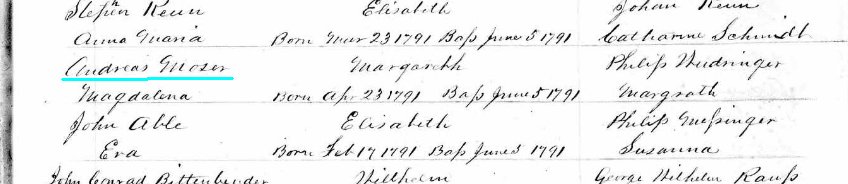 Stephn Keun Elisabeth Johan Keun
Anna Maria Born Mar 23 1791 Baß June 5 1791 Catharine Schmidt
Andreas Mozer Margareth Philip
Magdalena Born Apr 23 1791 Baß June 5 1791 Margrath
John Able Elisabeth Philip
Eva Born Feb 17 1791 Baß June 5 1791 Susanna
John Conrad Bittenbender Wilhelm George Wilhelm Rauß